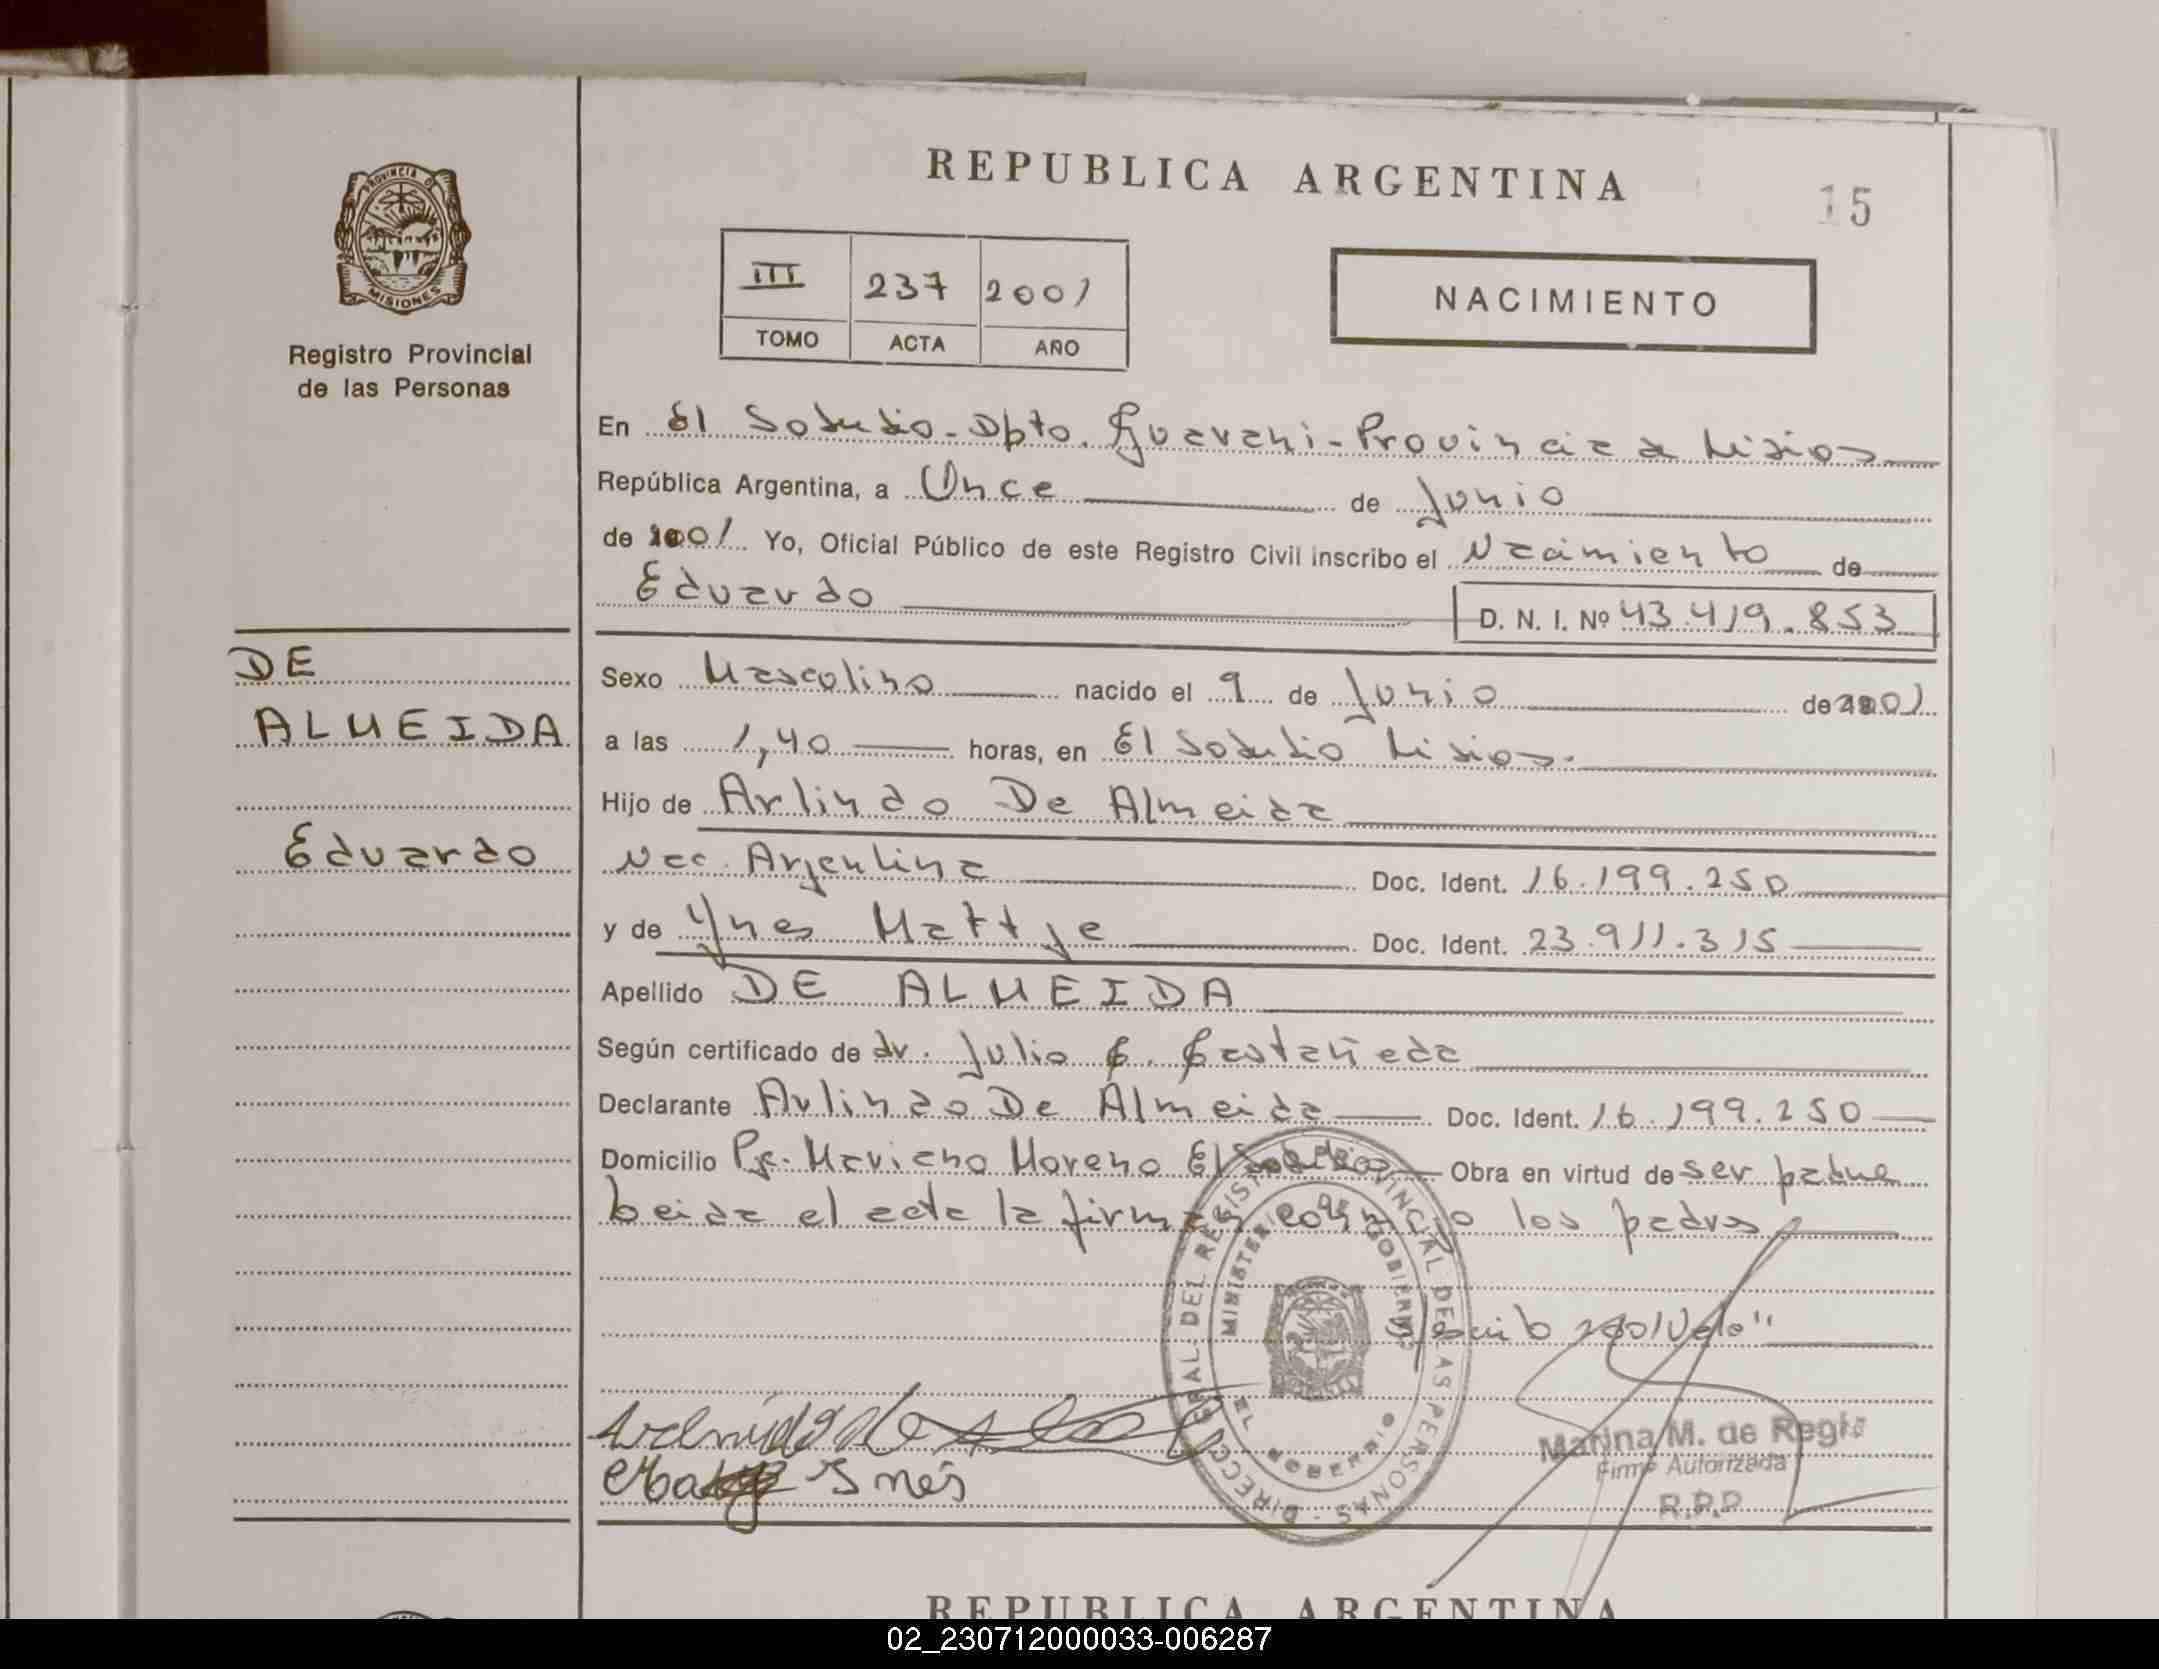 REPUBLICA ARGENTINA
15
PROVINCIA DE
MISIONES
Registro Provincial
de las Personas
III 237 2001
TOMO ACTA AÑO
NACIMIENTO
En El Soberbio - Dpto. Guarani - Provincia de Misiones
República Argentina, a Once de Junio
de 2001 Yo, Oficial Público de este Registro Civil inscribo el Nacimiento de
Eduardo D. N. I. Nº 43.419.853
DE
ALMEIDA
Eduardo
Sexo Masculino nacido el 9 de Junio de 2001
a las 1,40 horas, en El Soberbio Misiones.
Hijo de Arlindo De Almeida
Nac. Argentina Doc. Ident. 16.199.250
y de Ynes Mattje Doc. Ident. 23.911.315
Apellido DE ALMEIDA
Según certificado de dr. Julio C. Castañeda
Declarante Arlindo De Almeida Doc. Ident. 16.199.250
Domicilio Pje. Mariano Moreno El Soberbio Obra en virtud de ser padre
Leida el acta la firman conmigo los padres
DIRECC. GRAL. DEL REGISTRO PROVINCIAL DE LAS PERSONAS
MINISTERIO DE GOBIERNO
EL SOBERBIO
Inés
Marina M. de Regis
Firma Autorizada
R.P.P
REPUBLICA ARGENTINA
02_230712000033-006287